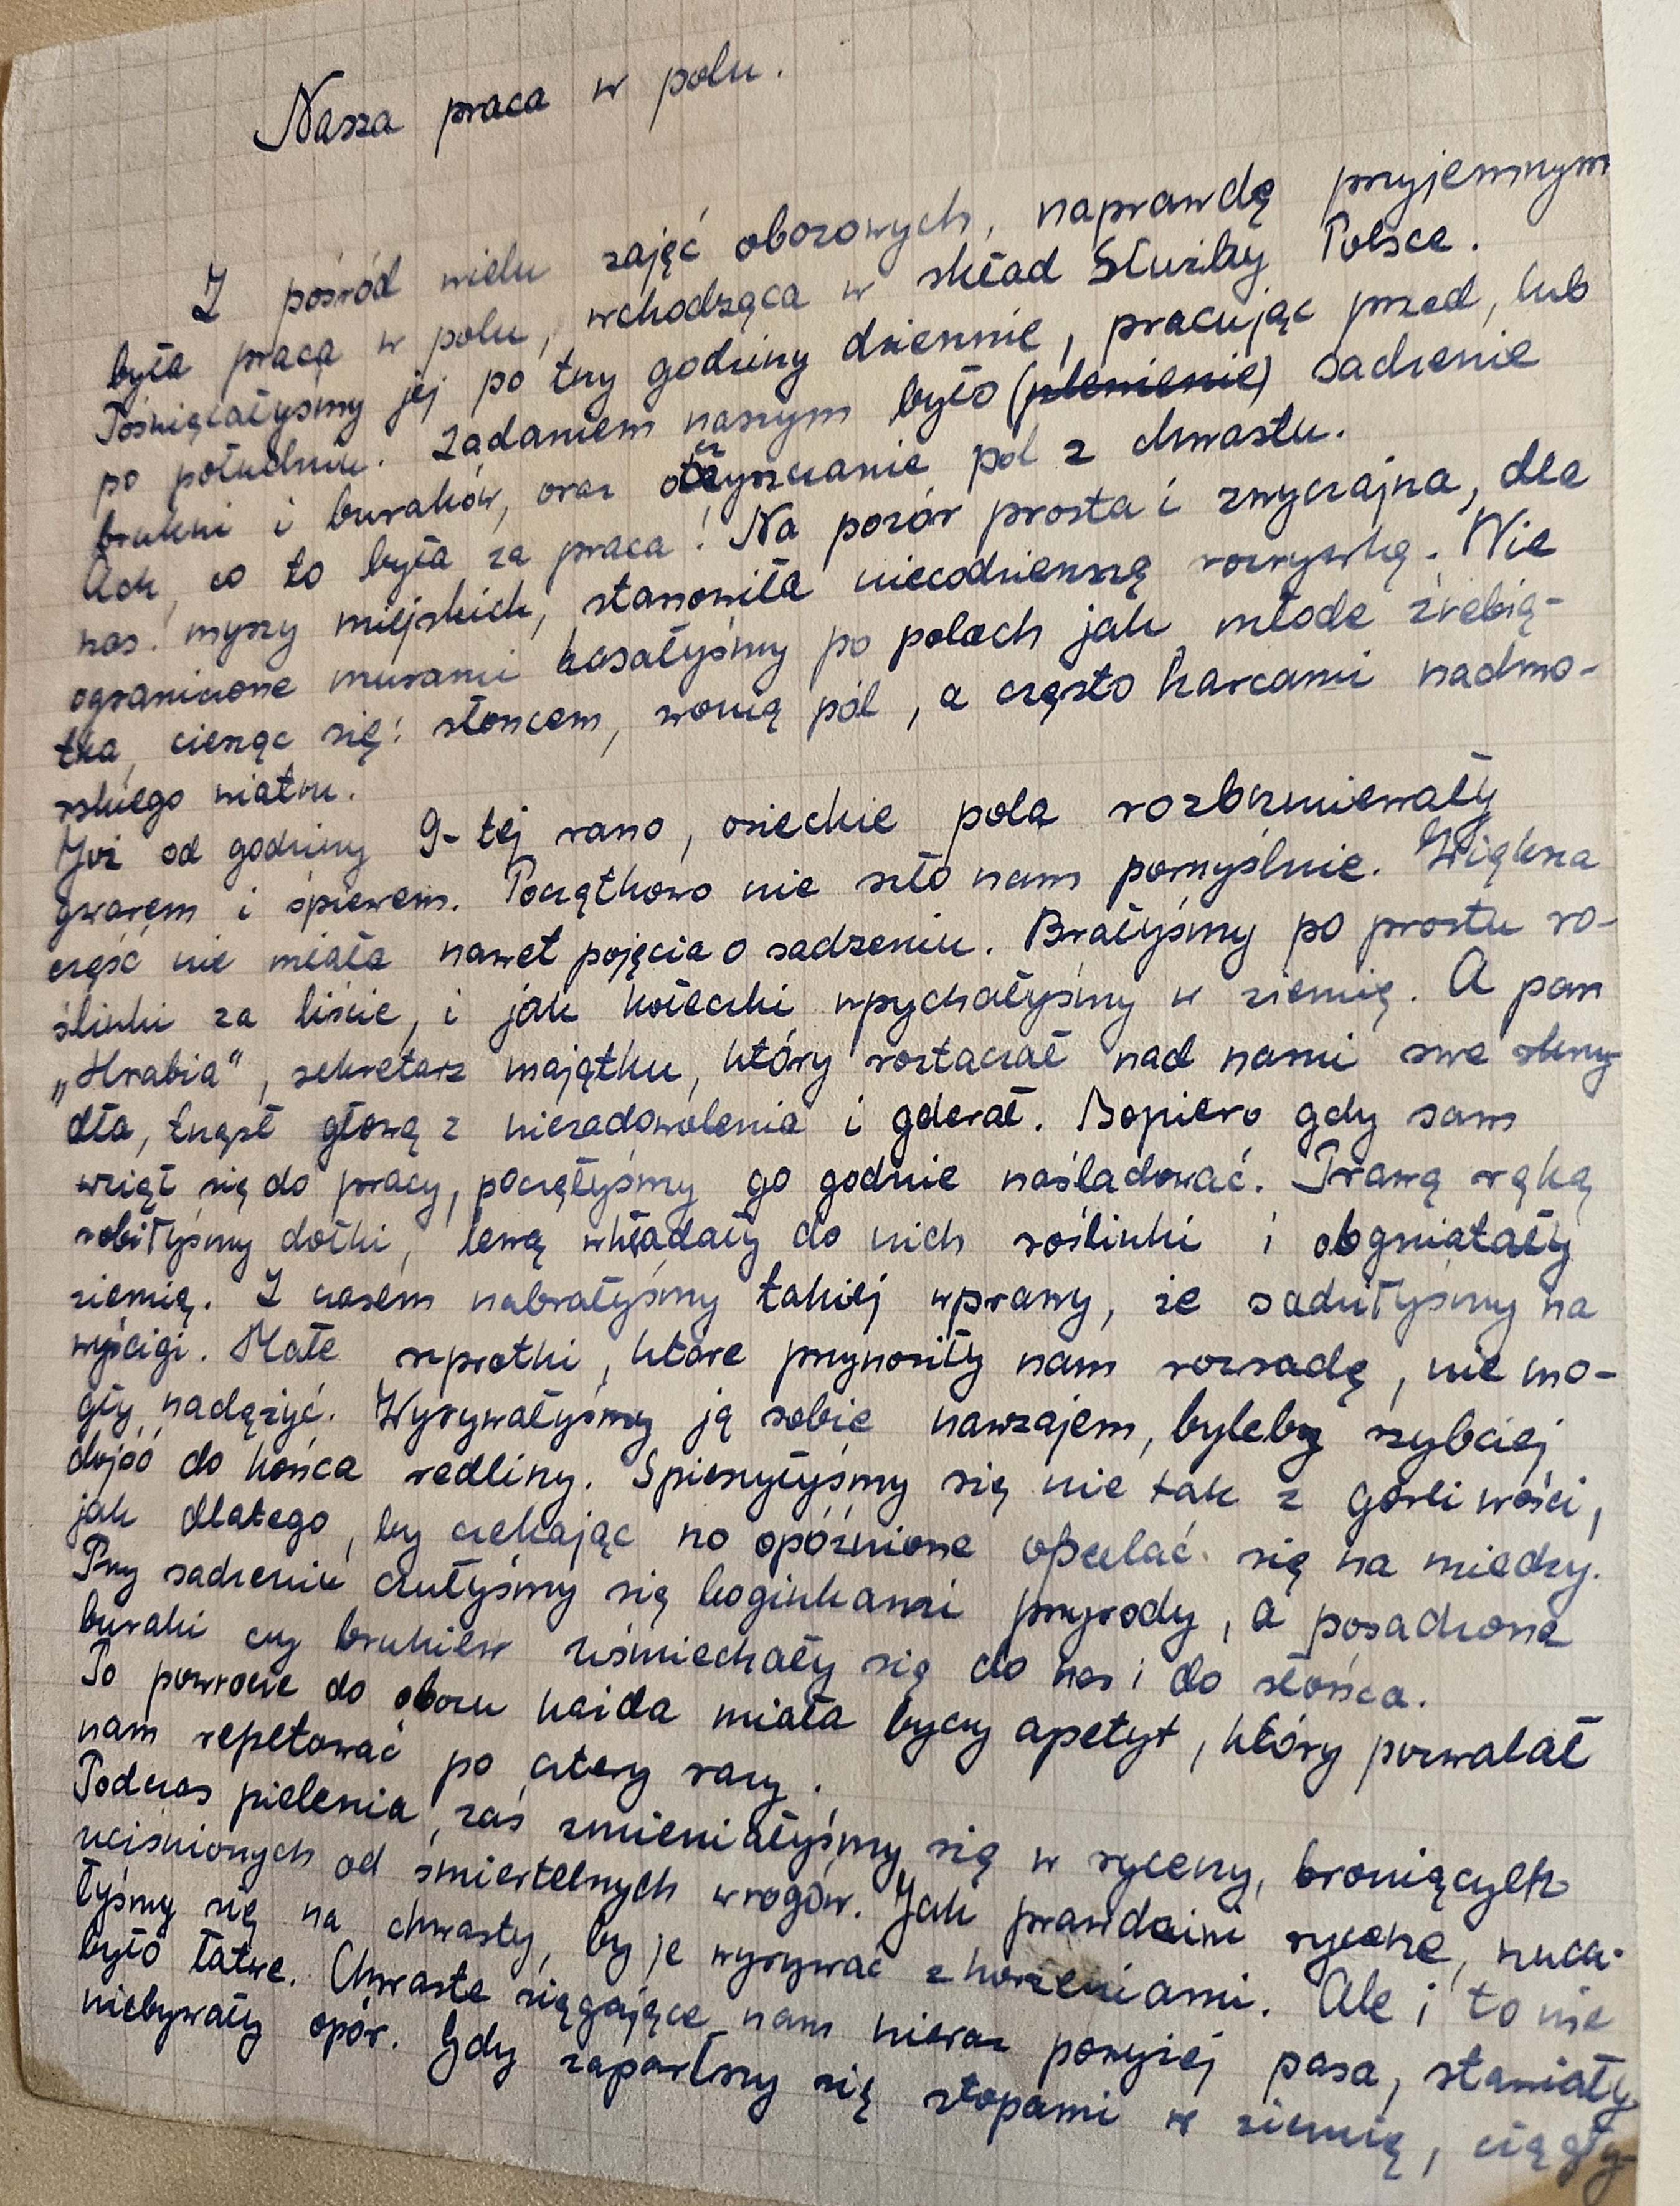 Nasza praca w polu.
Z pośród wielu zajęć obozowych, naprawdę przyjemnym
była praca w polu, wchodząca w skład Służby Polsce.
Poświęcałyśmy jej po trzy godziny dziennie, pracując przed, lub
po południu. Zadaniem naszym było (plenienie) sadzenie
brukwi i buraków, oraz oczyszczanie pól z chwastu.
Ach, co to była za praca! Na pozór prosta i zwyczajna, dla
nas! myszy miejskich, stanowiła niecodzienną rozrywkę. Nie
ograniczone murami hasałyśmy po polach jak młode źrebią-
tka, ciesząc się: słońcem, wonią pól, a często harcami nadmo-
rskiego wiatru.
Już od godziny 9-tej rano, osieckie pola rozbrzmiewały
gwarem i śpiewem. Początkowo nie szło nam pomyślnie. Większa
część nie miała nawet pojęcia o sadzeniu. Brałyśmy po prostu ro-
ślinki za liście, i jak kołeczki wpychałyśmy w ziemię. A pan
„Hrabia", sekretarz majątku, który roztaczał nad nami swe skrzy-
dła, trząsł głową z niezadowolenia i gderał. Dopiero gdy sam
wziął się do pracy, poczęłyśmy go godnie naśladować. Prawą ręką
robiłyśmy dołki, lewą wkładały do nich roślinki i obgniatały
ziemię. Z czasem nabrałyśmy takiej wprawy, że sadziłyśmy na
wyścigi. Małe szprotki, które przynosiły nam rozsadę, nie mo-
gły nadążyć. Wyrywałyśmy ją sobie nawzajem, byleby szybciej
dojść do końca redliny. Spieszyłyśmy się nie tak z gorliwości,
jak dlatego, by czekając na opóźnione opalać się na miedzy.
Przy sadzeniu czułyśmy się boginkami przyrody, a posadzone
buraki czy brukiew uśmiechały się do nas i do słońca.
Po powrocie do obozu każda miała byczy apetyt, który pozwalał
nam repetować po cztery razy.
Podczas pielenia, zaś zmieniałyśmy się w rycerzy, broniących
uciśnionych od śmiertelnych wrogów. Jak prawdziwi rycerze, rzuca-
łyśmy się na chwasty, by je wyrywać z korzeniami. Ale i to nie
było łatwe. Chwasta sięgające nam nieraz powyżej pasa, stawiały
niebywały opór. Gdy zaparłszy się stopami w ziemię, ciągły-